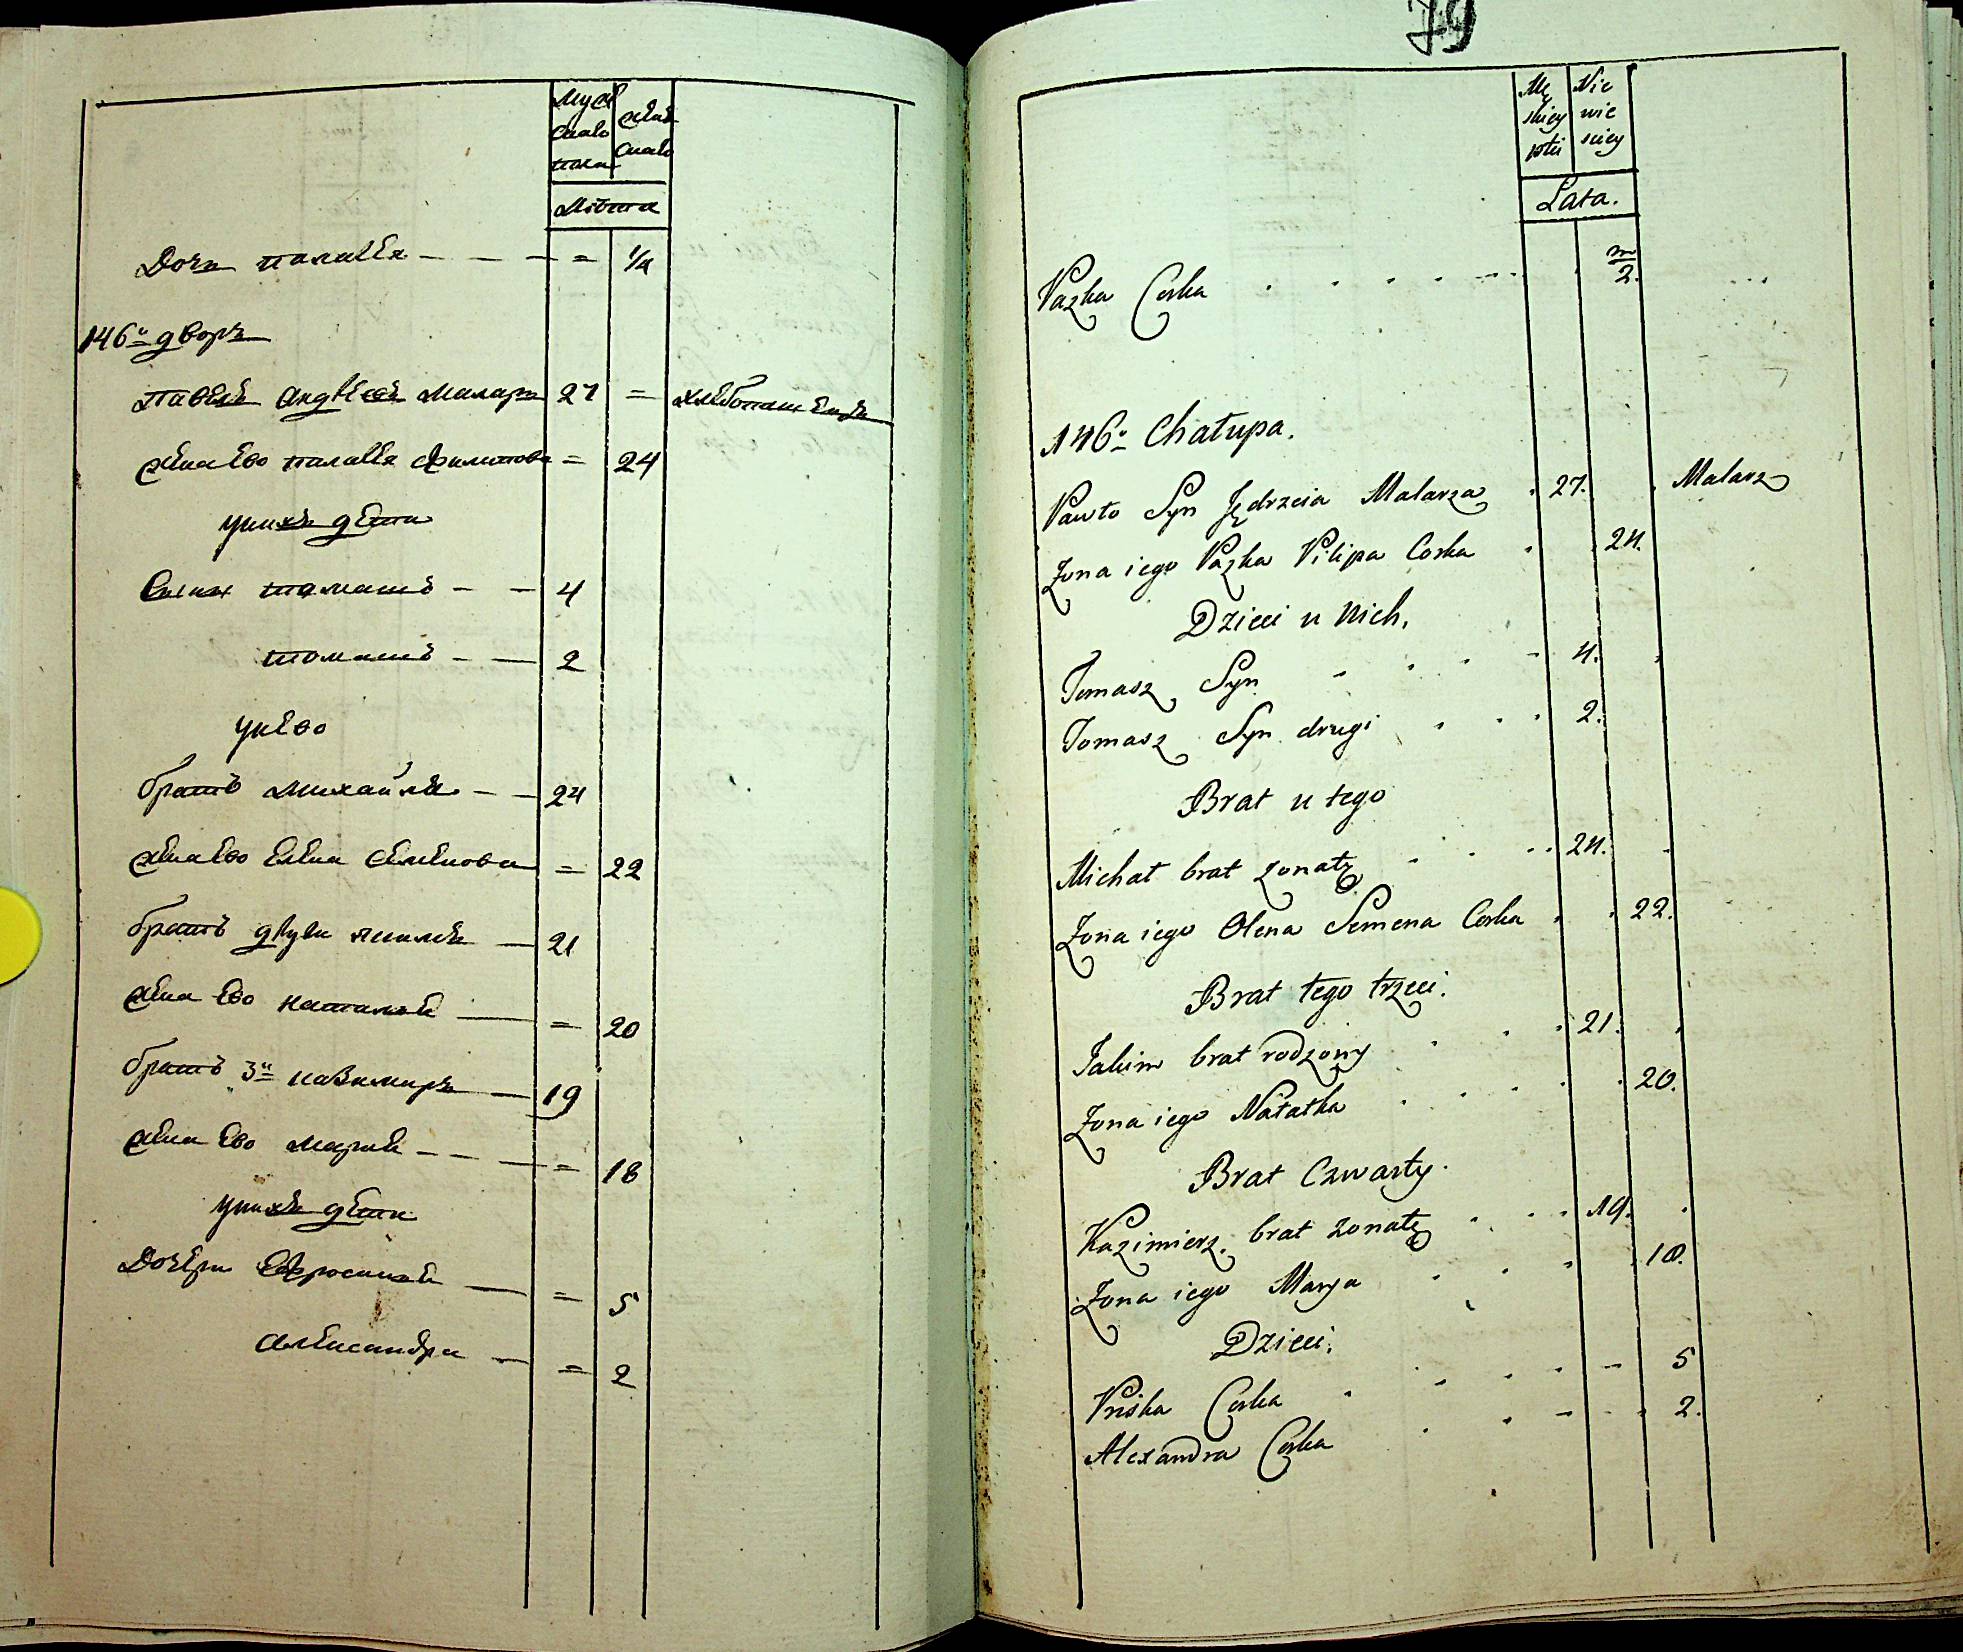 Мужска пола
женска
Лѣта
Дочь палагея — — — = 1/4
146й дворъ
Павелъ Андреевъ маляръ 27 = хлебопашецъ
жена ево палагея филипова = 24
у них дети
Сынъ томашъ — — 4
томашъ — — 2
у нево
братъ михайла — — 24
жена ево елена семенова = 22
братъ другй якимъ — 21
жена ево наталья — = 20
братъ 3й казимиръ — 19
жена ево марья — — — = 18
у них дети
Дочери Ефросинья — = 5
александра — = 2
79
Męskiey płci
Niewieściey
Lata.
Pazka Corka . . . . m/2.
146a Chałupa.
Pawło Syn Jędrzeia Malarza . 27. . Malarz
Zona iego Pazka Pilipa Corka . . 24.
Dzieci u nich.
Tomasz Syn . . . 4.
Tomasz Syn drugi . . . 2.
Brat u tego
Michał brat zonaty . . . 24.
Zona iego Olena Semena Corka . . 22.
Brat tego trzeci.
Jakim brat rodzony . . . 21.
Zona iego Natałka . . . 20.
Brat Czwarty.
Kazimierz brat zonaty . . . 19.
Zona iego Marya . . . 18.
Dzieci.
Priska Corka . . . . 5
Alexandra Corka . . . 2.